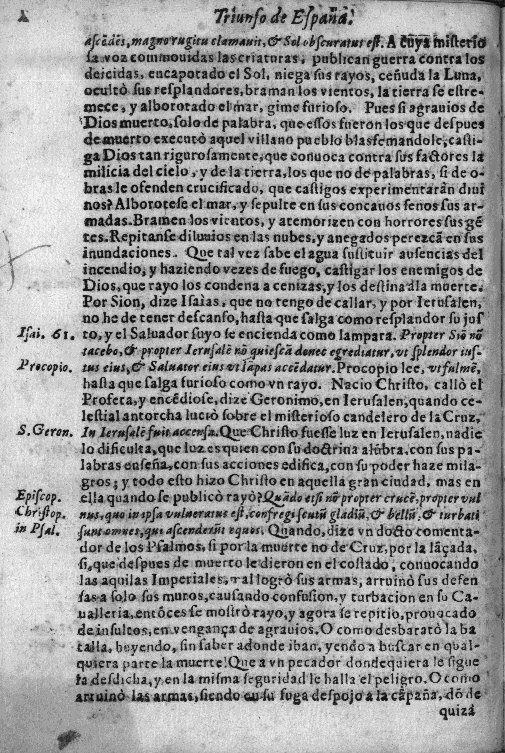 Triunfo de España.
ascẽdẽs, magno rugitu clamauit, & Sol obscuratus est. A cuya misterio
sa voz commouidas las criaturas, publican guerra contra los
deicidas, encapotado el Sol, niega sus rayos, ceñuda la Luna,
ocultò sus resplandores, braman los vientos, la tierra se estre-
mece, y alborotado el mar, gime furioso. Pues si agrauios de
Dios muerto, solo de palabra, que essos fueron los que despues
de muerto executò aquel villano pueblo blasfemandole, casti-
ga Dios tan rigurosamente, que conuoca contra sus factores la
milicia del cielo, y de la tierra, los que no de palabras, si de o-
bras le ofenden crucificado, que castigos experimentaràn diui
nos? Alborotese el mar, y sepulte en sus concauos senos sus ar-
madas. Bramen los vientos, y atemorizen con horrores sus gẽ
tes. Repitanse diluuios en las nubes, y anegados perezcã en sus
inundaciones. Que tal vez sabe el agua sustituir ausencias del
incendio, y haziendo vezes de fuego, castigar los enemigos de
Dios, que rayo los condena a cenizas, y los destina a la muerte.
Por Sion, dize Isaias, que no tengo de callar, y por Ierusalen,
no he de tener descanso, hasta que salga como resplandor su jus
Isai. 61. to, y el Saluador suyo se encienda como lampara. Propter Siõ nõ
tacebo, & propter Ierusalẽ nõ quiescã donec egrediatur, vt splendor ius-
Procopio. tus eius, & Saluator eius vt lãpas accẽdatur. Procopio lee, vt fulmẽ,
hasta que salga furioso como vn rayo. Nacio Christo, callò el
Profeta, y encẽdiose, dize Geronimo, en Ierusalen, quando ce-
lestial antorcha luciò sobre el misterioso candelero de la Cruz,
S. Geron. In Ierusalẽ fuit accensa. Que Christo fuesse luz en Ierusalen, nadie
lo dificulta, que luz es quien con su doctrina alũbra, con sus pa-
labras enseña, con sus acciones edifica, con su poder haze mila-
gros; y todo esto hizo Christo en aquella gran ciudad, mas en
Episcop. ella quando se publicò rayo? Quãdo etsi nõ propter crucẽ, propter vul
Christop. nus, quo in ipsa vulneratus est, confregit scutũ, gladiũ, & bellũ, & turbati
in Psal. sunt omnes, qui ascenderũt equos. Quando, dize vn docto comenta-
dor de los Psalmos, si por la muerte no de Cruz, por la lãçada,
si, que despues de muerto le dieron en el costado, conuocando
las aquilas Imperiales, tal logrò sus armas, arruinò sus defen
sas a solo sus muros, causando confusion, y turbacion en su Ca-
ualleria, entõces se mostrò rayo, y agora se repitio, prouocado
de insultos, en vengança de agrauios. O como desbaratò la ba
talla, huyendo, sin saber adonde iban, yendo a buscar en qual-
quiera parte la muerte! Que a vn pecador dondequiera le sigue
la desdicha, y en la misma seguridad le halla el peligro. O como
arruinò las armas, siendo en su fuga despojo a la cãpaña, dõ de
quizá